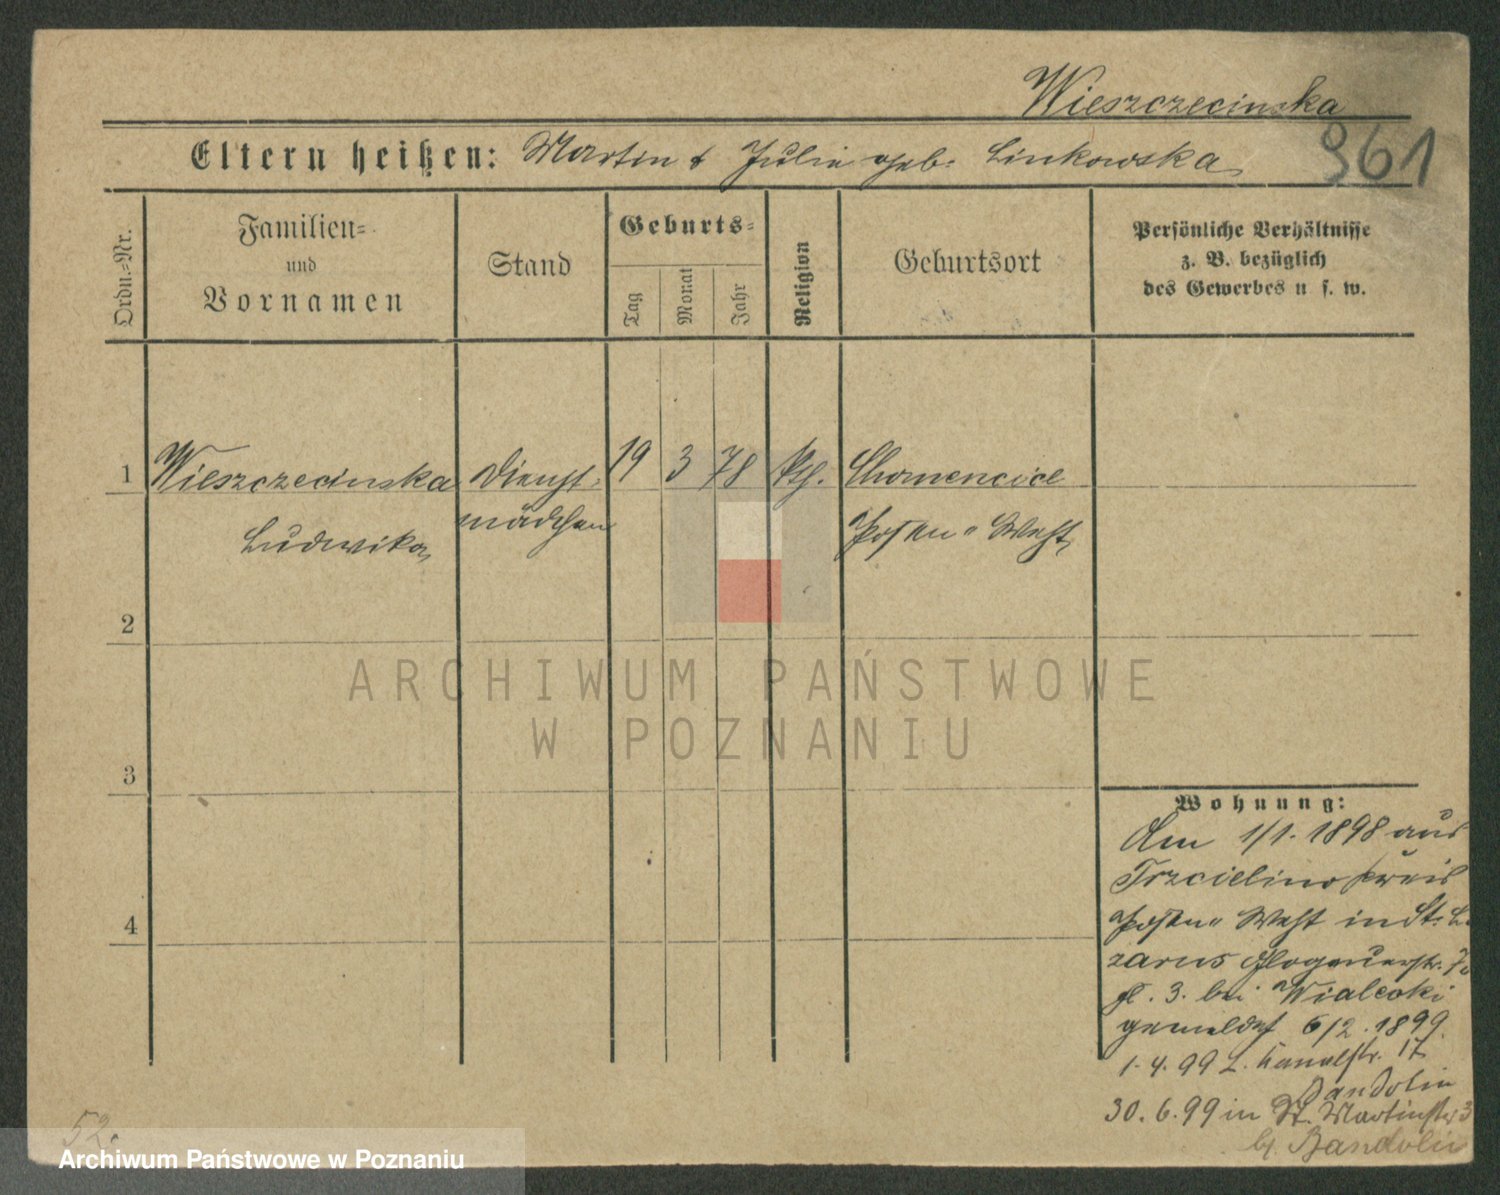 Wieszczecinska
961
Eltern heißen: Martin & Julie geb. Linkowska
Ordn.-Nr.
Familien-
und
Vornamen
Stand
Geburts-
Tag
Monat
Jahr
Religion
Geburtsort
Persönliche Verhältnisse
z. B. bezüglich
des Gewerbes u. s. w.
1 Wieszczecinska Dienst- 19 3 78 kth. Chomencice
Ludwika mädchen Posen-West
2
3
4
ARCHIWUM PAŃSTWOWE
W POZNANIU
Wohnung:
Am 1/1. 1898 aus
Trzcielino Kreis
Posen West in St. La
zarus Glogauerstr.
3. bei
gemeldet 6/2. 1899.
1.4.99 Kanalstr. 17
Bandolin
30.6.99 in St. Martinstr 3
b/ Bandolin
52.
Archiwum Państwowe w Poznaniu